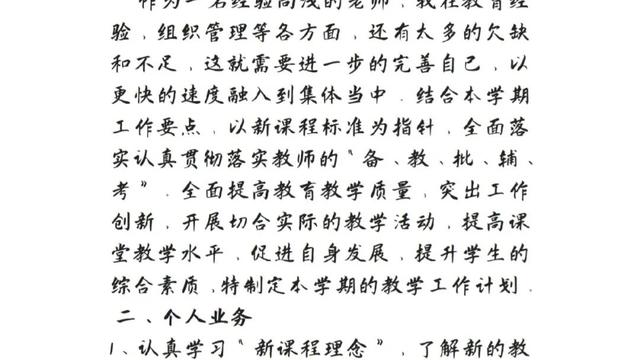 作为一名经验尚浅的老师，我在教育经
验，组织管理等各方面，还有太多的欠缺
和不足，这就需要进一步的完善自己，以
更快的速度融入到集体当中．结合本学期
工作要点，以新课程标准为指针，全面落
实认真贯彻落实教师的“备、教、批、辅、
考”．全面提高教育教学质量，突出工作
创新，开展切合实际的教学活动，提高课
堂教学水平，促进自身发展，提升学生的
综合素质，特制定本学期的教学工作计划．
二、个人业务
1、认真学习“新课程理念”，了解新的教